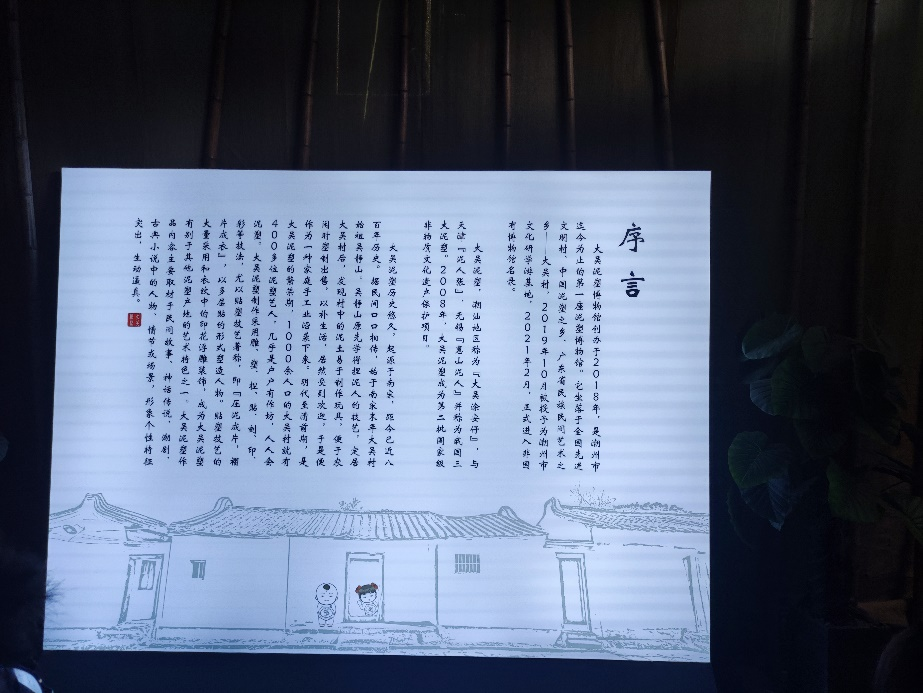 序言
大吴泥塑博物馆创办于2018年，是潮州市
迄今为止的第一座泥塑博物馆。它坐落于全国先进
文明村、中国泥塑之乡、广东省民族民间艺术之
乡—大吴村，2019年10月被授予为潮州市
文化研学游基地，2021年2月，正式进入非国
有博物馆名录。
大吴泥塑，潮汕地区称为『大吴涂安仔』，与
天津『泥人张』、无锡『惠山泥人』并称为我国三
大泥塑。2008年，大吴泥塑成为第二批国家级
非物质文化遗产保护项目。
大吴泥塑历史悠久，起源于南宋，距今已近八
百年历史。据民间口口相传，始于南宋末年大吴村
始祖吴静山。吴静山原先学得捏泥人的技艺，定居
大吴村后，发现村中的泥土易于制作玩具，便于农
闲时塑制出售，以补生活，居然受到欢迎，于是便
作为一种家庭手工业沿袭下来。明代至清前期，是
大吴泥塑的繁荣期，1000余人口的大吴村就有
400多位泥塑艺人，几乎是户户有作坊，人人会
泥塑。大吴泥塑制作采用雕、塑、捏、贴、刻、印、
彩等技法，尤以贴塑技艺著称，即『压泥成片，褶
片成衣』，以多层贴的形式塑造人物。贴塑技艺的
大量采用和衣纹中的印花浮雕装饰，成为大吴泥塑
有别于其他泥塑产地的艺术特色之一。大吴泥塑作
品内容主要取材于民间故事、神话传说、潮剧、
古典小说中的人物、情节或场景，形象个性特征
突出，生动逼真。